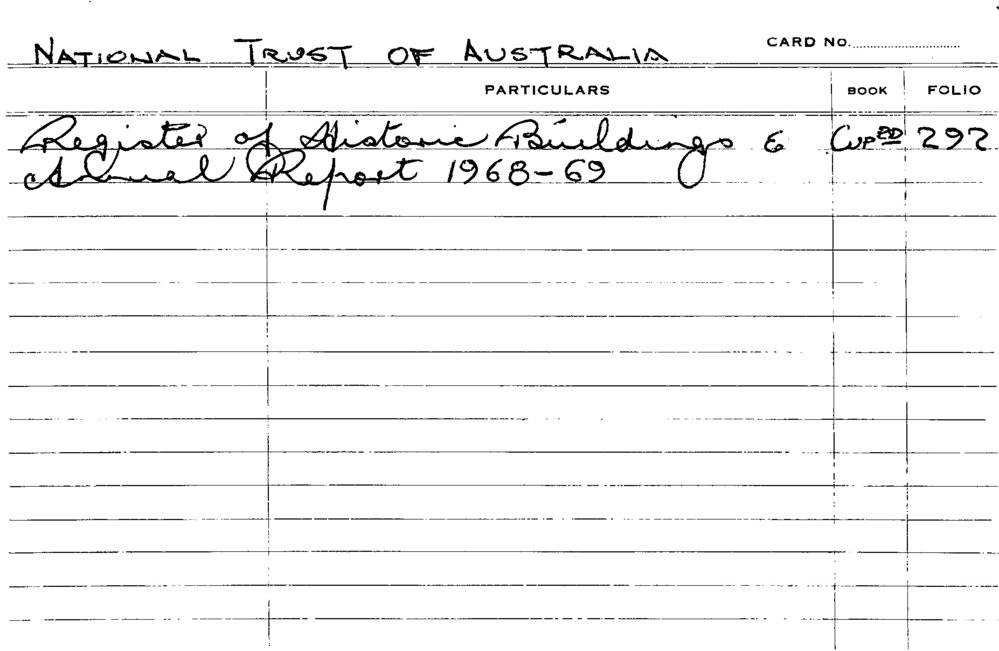 NATIONAL TRUST OF AUSTRALIA CARD No.
PARTICULARS BOOK FOLIO
Register of Historic Buildings & CUPBD 292
Annual Report 1968-69